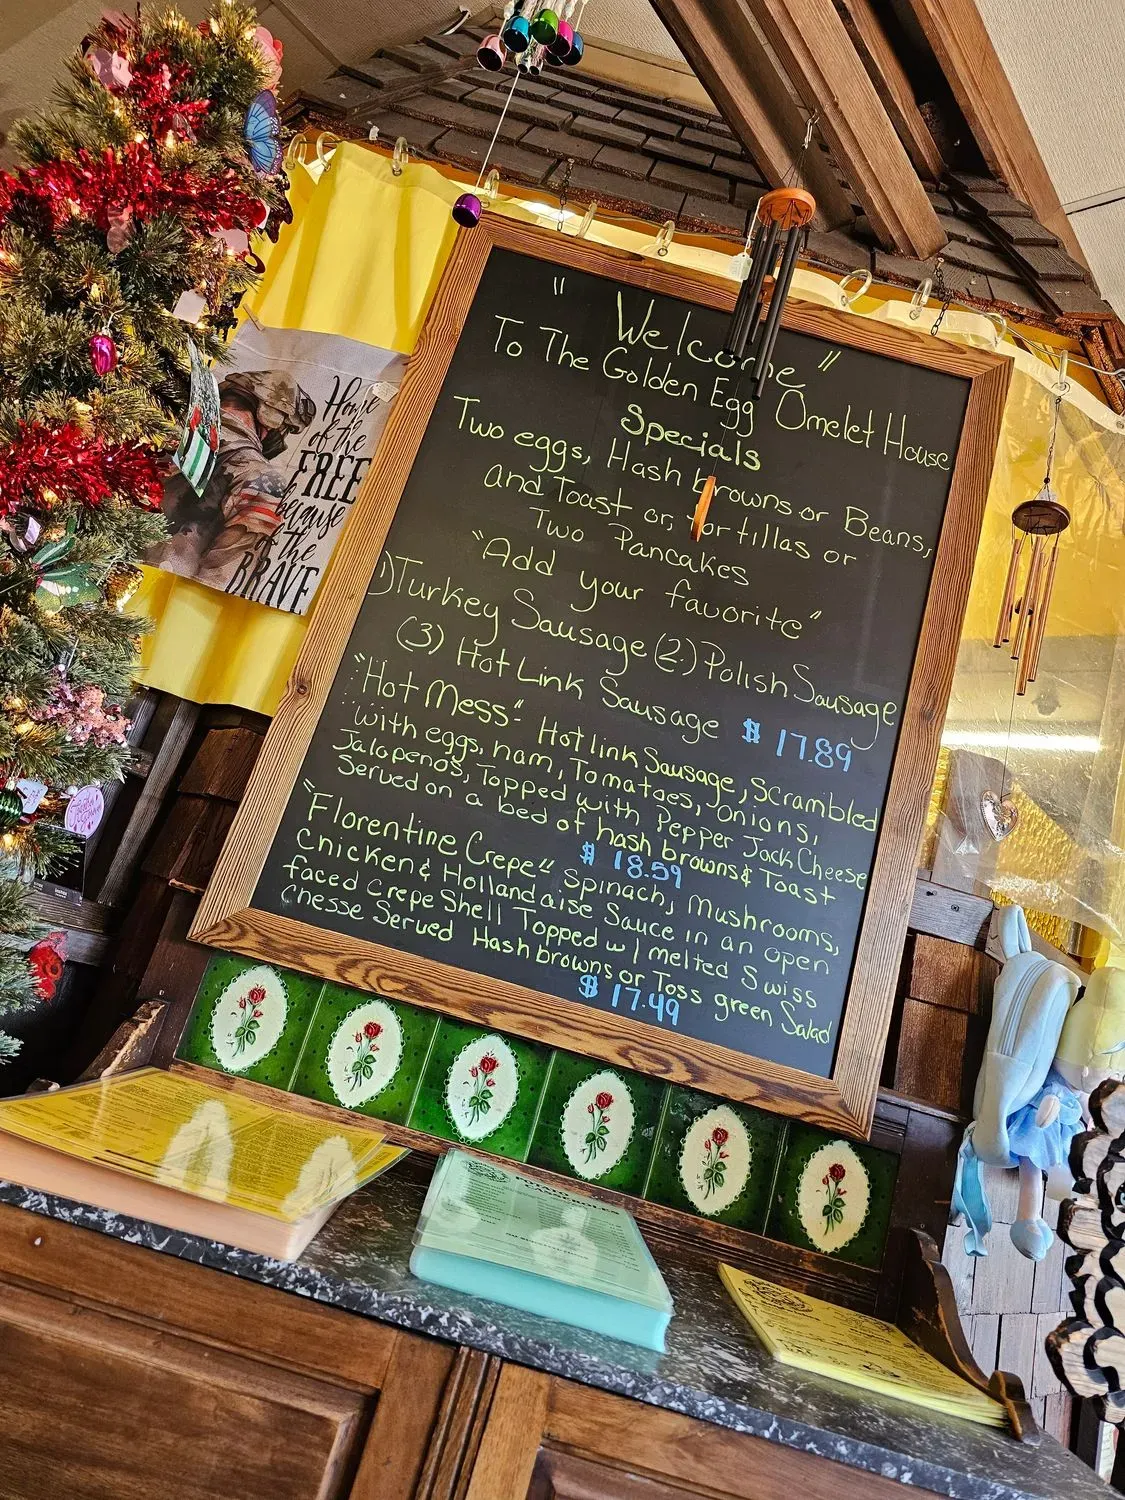 " Welcome "
To The Golden Egg Omelet House
Specials
Two eggs, Hash browns or Beans,
and Toast or, Tortillas or
Two Pancakes
"Add your favorite"
1) Turkey Sausage (2.) Polish Sausage
(3) Hot Link Sausage $ 17.89
"Hot Mess"- Hotlink Sausage, Scrambled
with eggs, ham, Tomatoes, Onions,
Jalapenos, Topped with Pepper Jack Cheese
Served on a bed of hash browns & Toast
$ 18.59
"Florentine Crepe" Spinach, Mushrooms,
Chicken & Hollandaise Sauce in an open
faced Crepe Shell Topped w/ melted Swiss
Chesse Served Hash browns or Toss green Salad
$ 17.49
Home
of the
FREE
because
of the
BRAVE